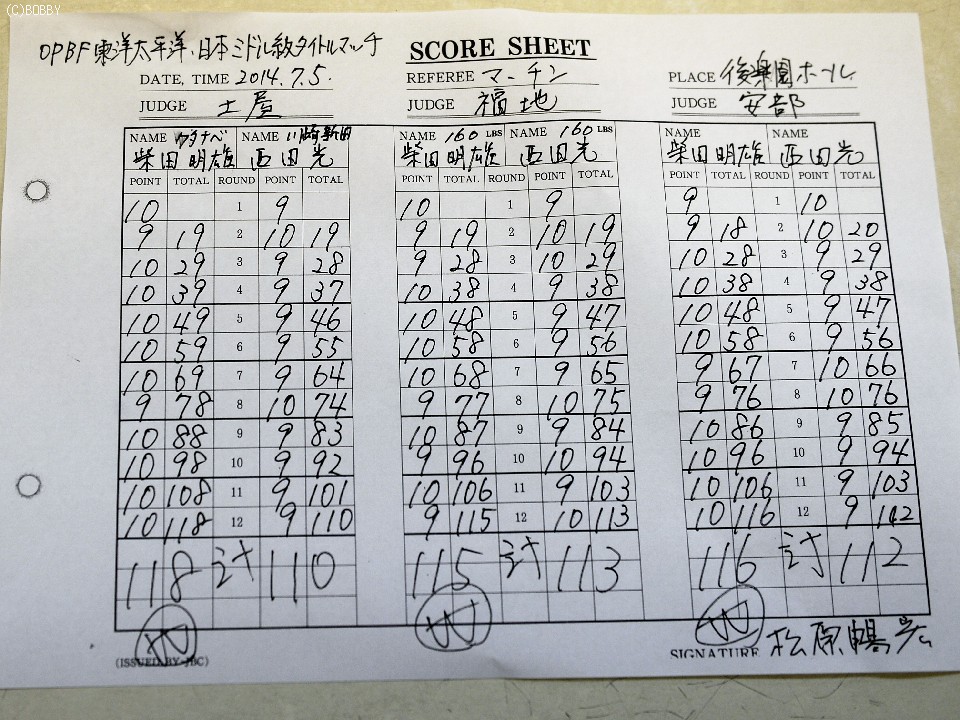 (C)BOBBY
OPBF東洋太平洋・日本ミドル級タイトルマッチ
SCORE SHEET
DATE, TIME 2014.7.5. REFEREE マーチン PLACE 後楽園ホール
JUDGE 土屋 JUDGE 福地 JUDGE 安部
NAME ワタナベ NAME 川崎新田 NAME 160 LBS NAME 160 LBS NAME NAME
柴田明雄 西田光 柴田明雄 西田光 柴田明雄 西田光
POINT TOTAL ROUND POINT TOTAL POINT TOTAL ROUND POINT TOTAL POINT TOTAL ROUND POINT TOTAL
10 1 9 10 1 9 9 1 10
9 19 2 10 19 9 19 2 10 19 9 18 2 10 20
10 29 3 9 28 9 28 3 10 29 10 28 3 9 29
10 39 4 9 37 10 38 4 9 38 10 38 4 9 38
10 49 5 9 46 10 48 5 9 47 10 48 5 9 47
10 59 6 9 55 10 58 6 9 56 10 58 6 9 56
10 69 7 9 64 10 68 7 9 65 9 67 7 10 66
9 78 8 10 74 9 77 8 10 75 9 76 8 10 76
10 88 9 9 83 10 87 9 9 84 10 86 9 9 85
10 98 10 9 92 9 96 10 10 94 10 96 10 9 94
10 108 11 9 101 10 106 11 9 103 10 106 11 9 103
10 118 12 9 110 9 115 12 10 113 10 116 12 9 112
118 計 110 115 計 113 116 計 112
(ISSUED BY JBC) SIGNATURE 松原